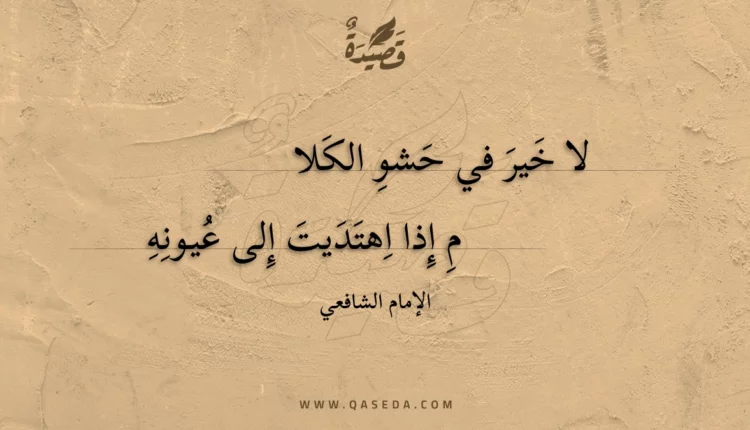 قَصِيْدَةٌ
لا خَيرَ في حَشوِ الكَلا
مِ إِذا اِهتَدَيتَ إِلى عُيونِهِ
الإمام الشافعي
WWW.QASEDA.COM